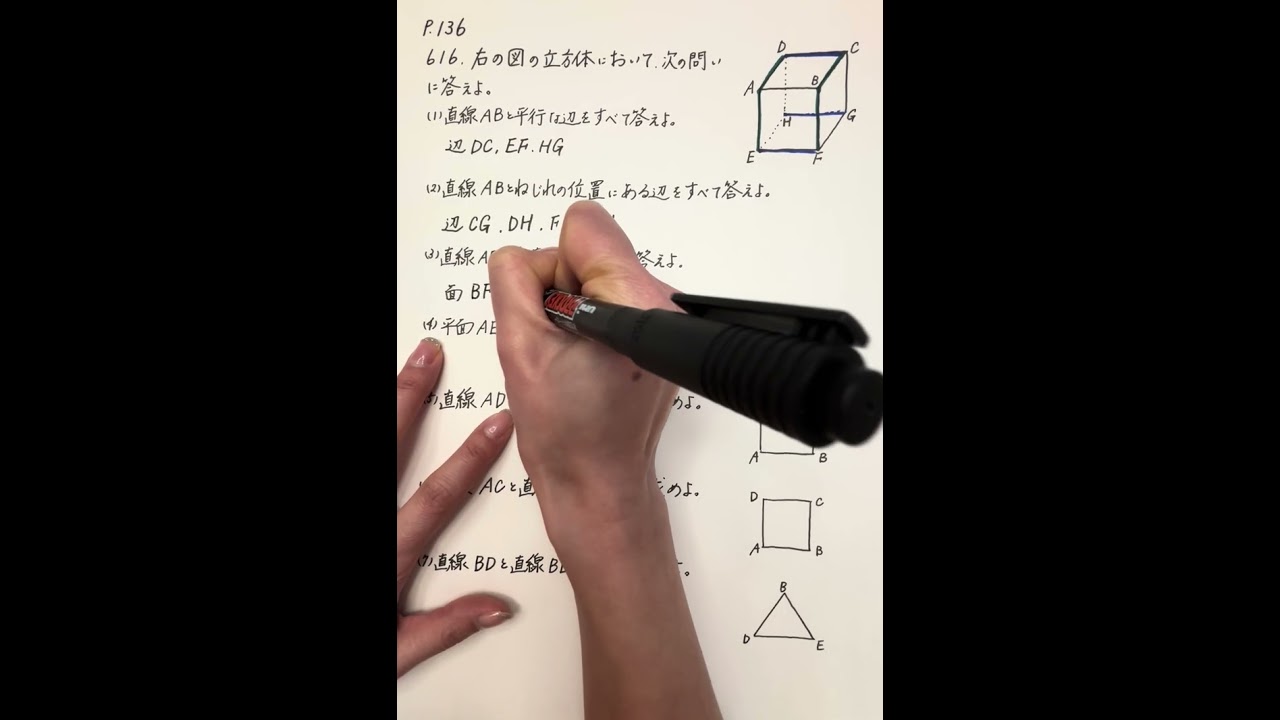 P.136
616. 右の図の立方体において、次の問い
に答えよ。
(1) 直線ABと平行な辺をすべて答えよ。
辺DC, EF. HG
(2) 直線ABとねじれの位置にある辺をすべて答えよ。
辺CG, DH. F
(3) 直線A 答えよ。
面BF
(4) 平面AE
直線AD めよ。
ACと直 めよ。
(7) 直線BDと直線BE
D C
A B
H G
E F
A B
D C
A B
B
D E